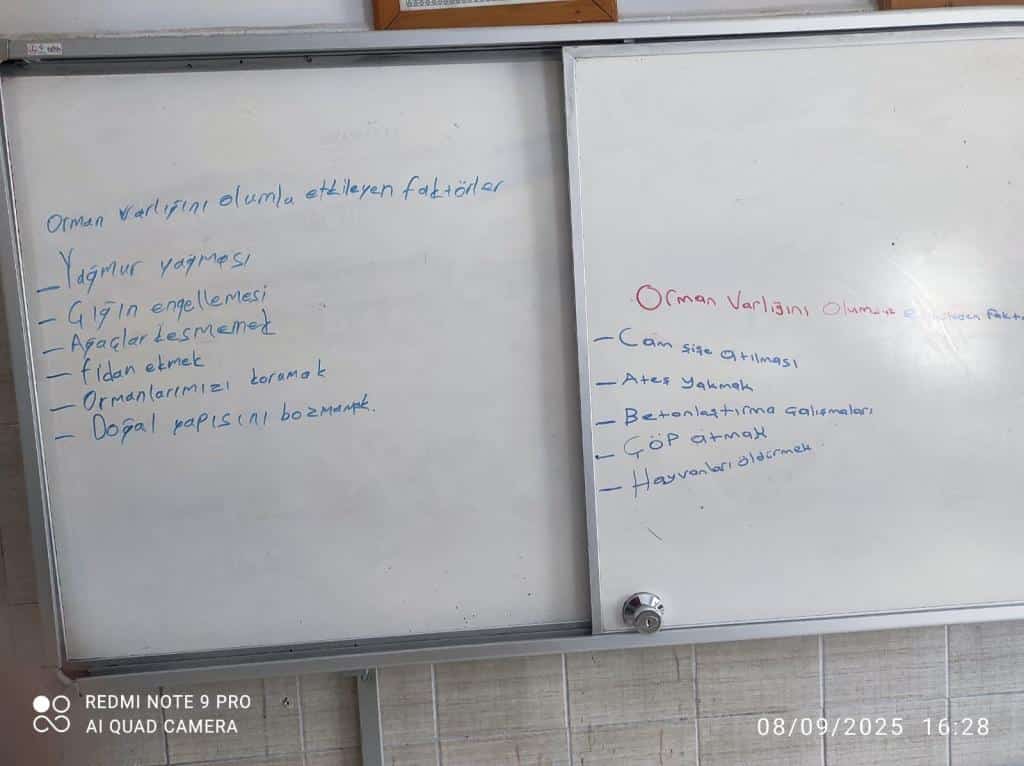 Orman varlığını olumlu etkileyen faktörler
- Yağmur yağması
- Çığın engellemesi
- Ağaçlar kesmemek
- fidan ekmek
- Ormanlarımızı koramak
- Doğal yapısını bozmamak.
Orman Varlığını Olumsuz
- Cam şişe atılması
- Ateş Yakmak
- Betonlaştırma çalışmaları
- ÇÖP atmak
- Hayvanları öldürmek
REDMI NOTE 9 PRO
AI QUAD CAMERA
08/09/2025 16:28